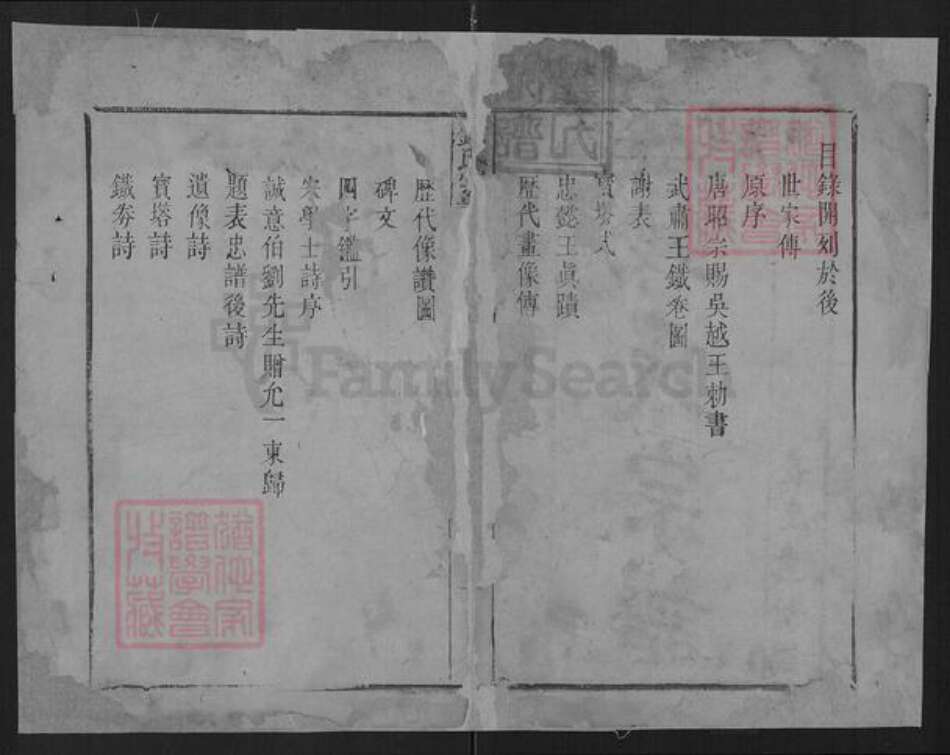 目錄開刻於後
世家傳
原序
唐昭宗賜吳越王勅書
武肅王鐵卷圖
謝表
寶塔式
忠懿王眞蹟
歷代畫像傳
歷代像讚圖
碑文
四字鑑引
宋學士詩序
誠意伯劉先生贈允一東歸
題表忠譜後詩
遺像詩
寶塔詩
鐵券詩
FamilySearch